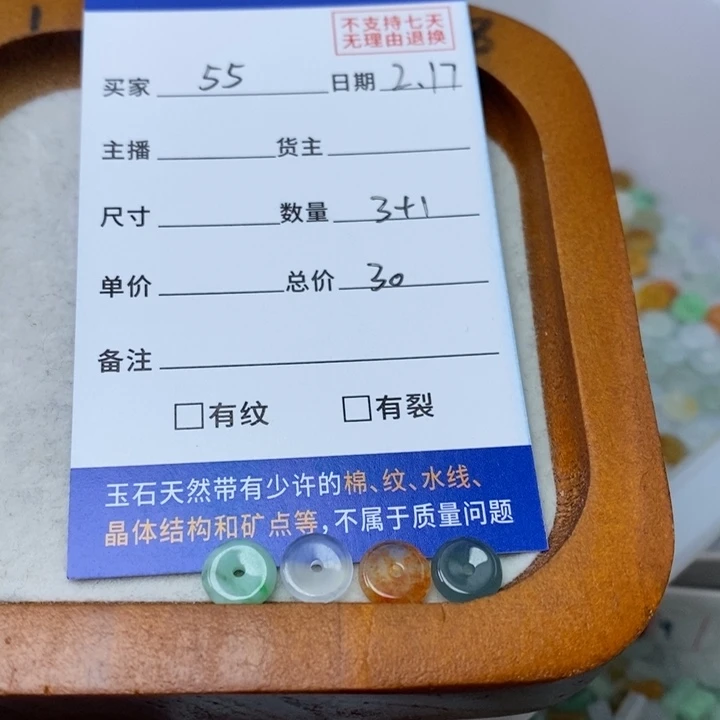 不支持七天
无理由退换
买家 55 日期 2.17
主播 货主
尺寸 数量 3+1
单价 总价 30
备注
□有纹 □有裂
玉石天然带有少许的棉、纹、水线、
晶体结构和矿点等，不属于质量问题